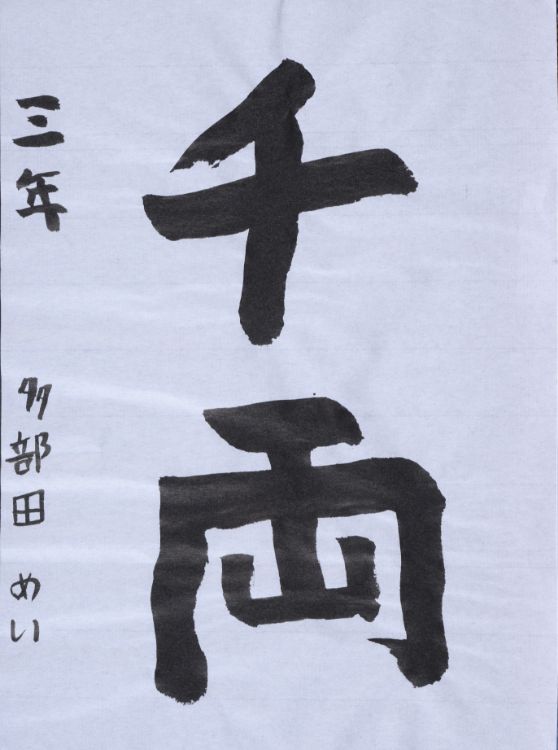 千両
三年 多部田 めい